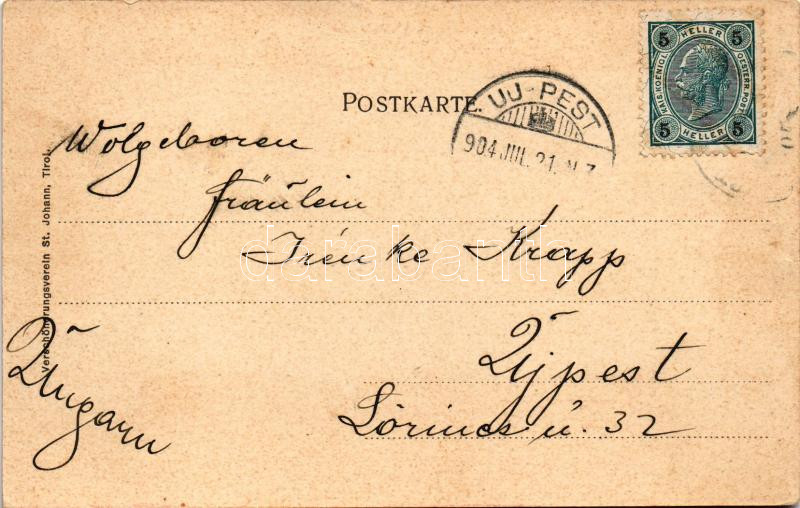 POSTKARTE.
UJ-PEST
904 JUL. 21. N 7
5 HELLER 5
KAIS. KOENIGL. OESTERR. POST
5 HELLER 5
Wolgeboren
Fräulein
Irénke Krapp
Újpest
Lőrincs ú. 32
Ungarn
Verschönerungsverein St. Johann, Tirol.
darabanth